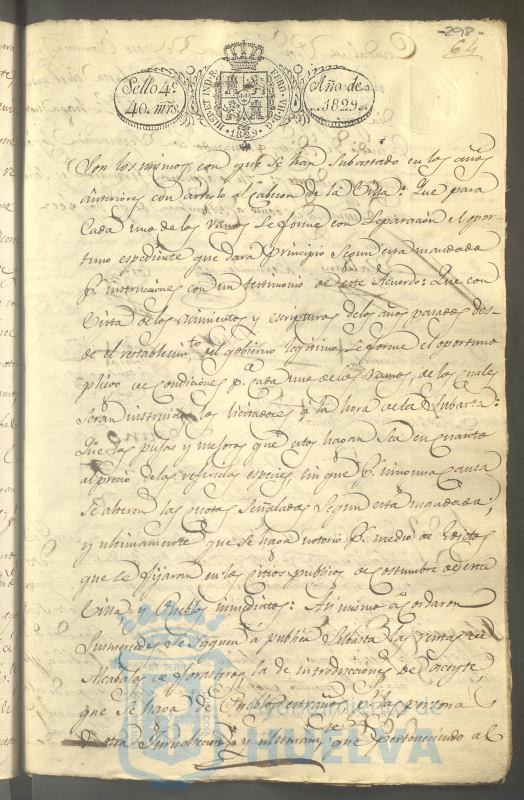 298
64
Sello 4º
40. mrs.
HISP. ET IND. R.
FERD. VII D. G.
1829.
Año de
1829.
Son los mismos con que se han subastado en los años
anteriores con arreglo al cabezon de la Villa: Que para
Cada uno de los Ramos se forme con separacion el opor-
tuno espediente que dará principio segun está mandado
pr. instrucciones con un testimonio de este Acuerdo: Que con
Vista de los y escripturas de los años pasados des-
de el restablecimto. del gobierno legitimo, se forme el oportuno
pliego de Condiciones pa. cada uno de los Ramos, de los cuales
serán instruidos los licitadores á la hora de la Subasta:
Que las pujas y mejoras que estos hagan sea en cuanto
al precio de las referidas especies, sin que pr. ninguna causa
se alteren las quotas señaladas segun está mandado;
y ultimamente que se haga notorio pr. medio de Edictos
que se fijaran en los Sitios publicos de costumbre de esta
Villa y Pueblos inmediatos: Asi mismo acordaron
Sus mercedes se saquen á publica subasta las rentas de
Alcabalas de forasteros, la de introducciones de
que se haga de Pueblos extraños pr. persona
de otra Jurisdiccion, y ultimamte. que perteneciendo al
Ayuntamiento de
HUELVA